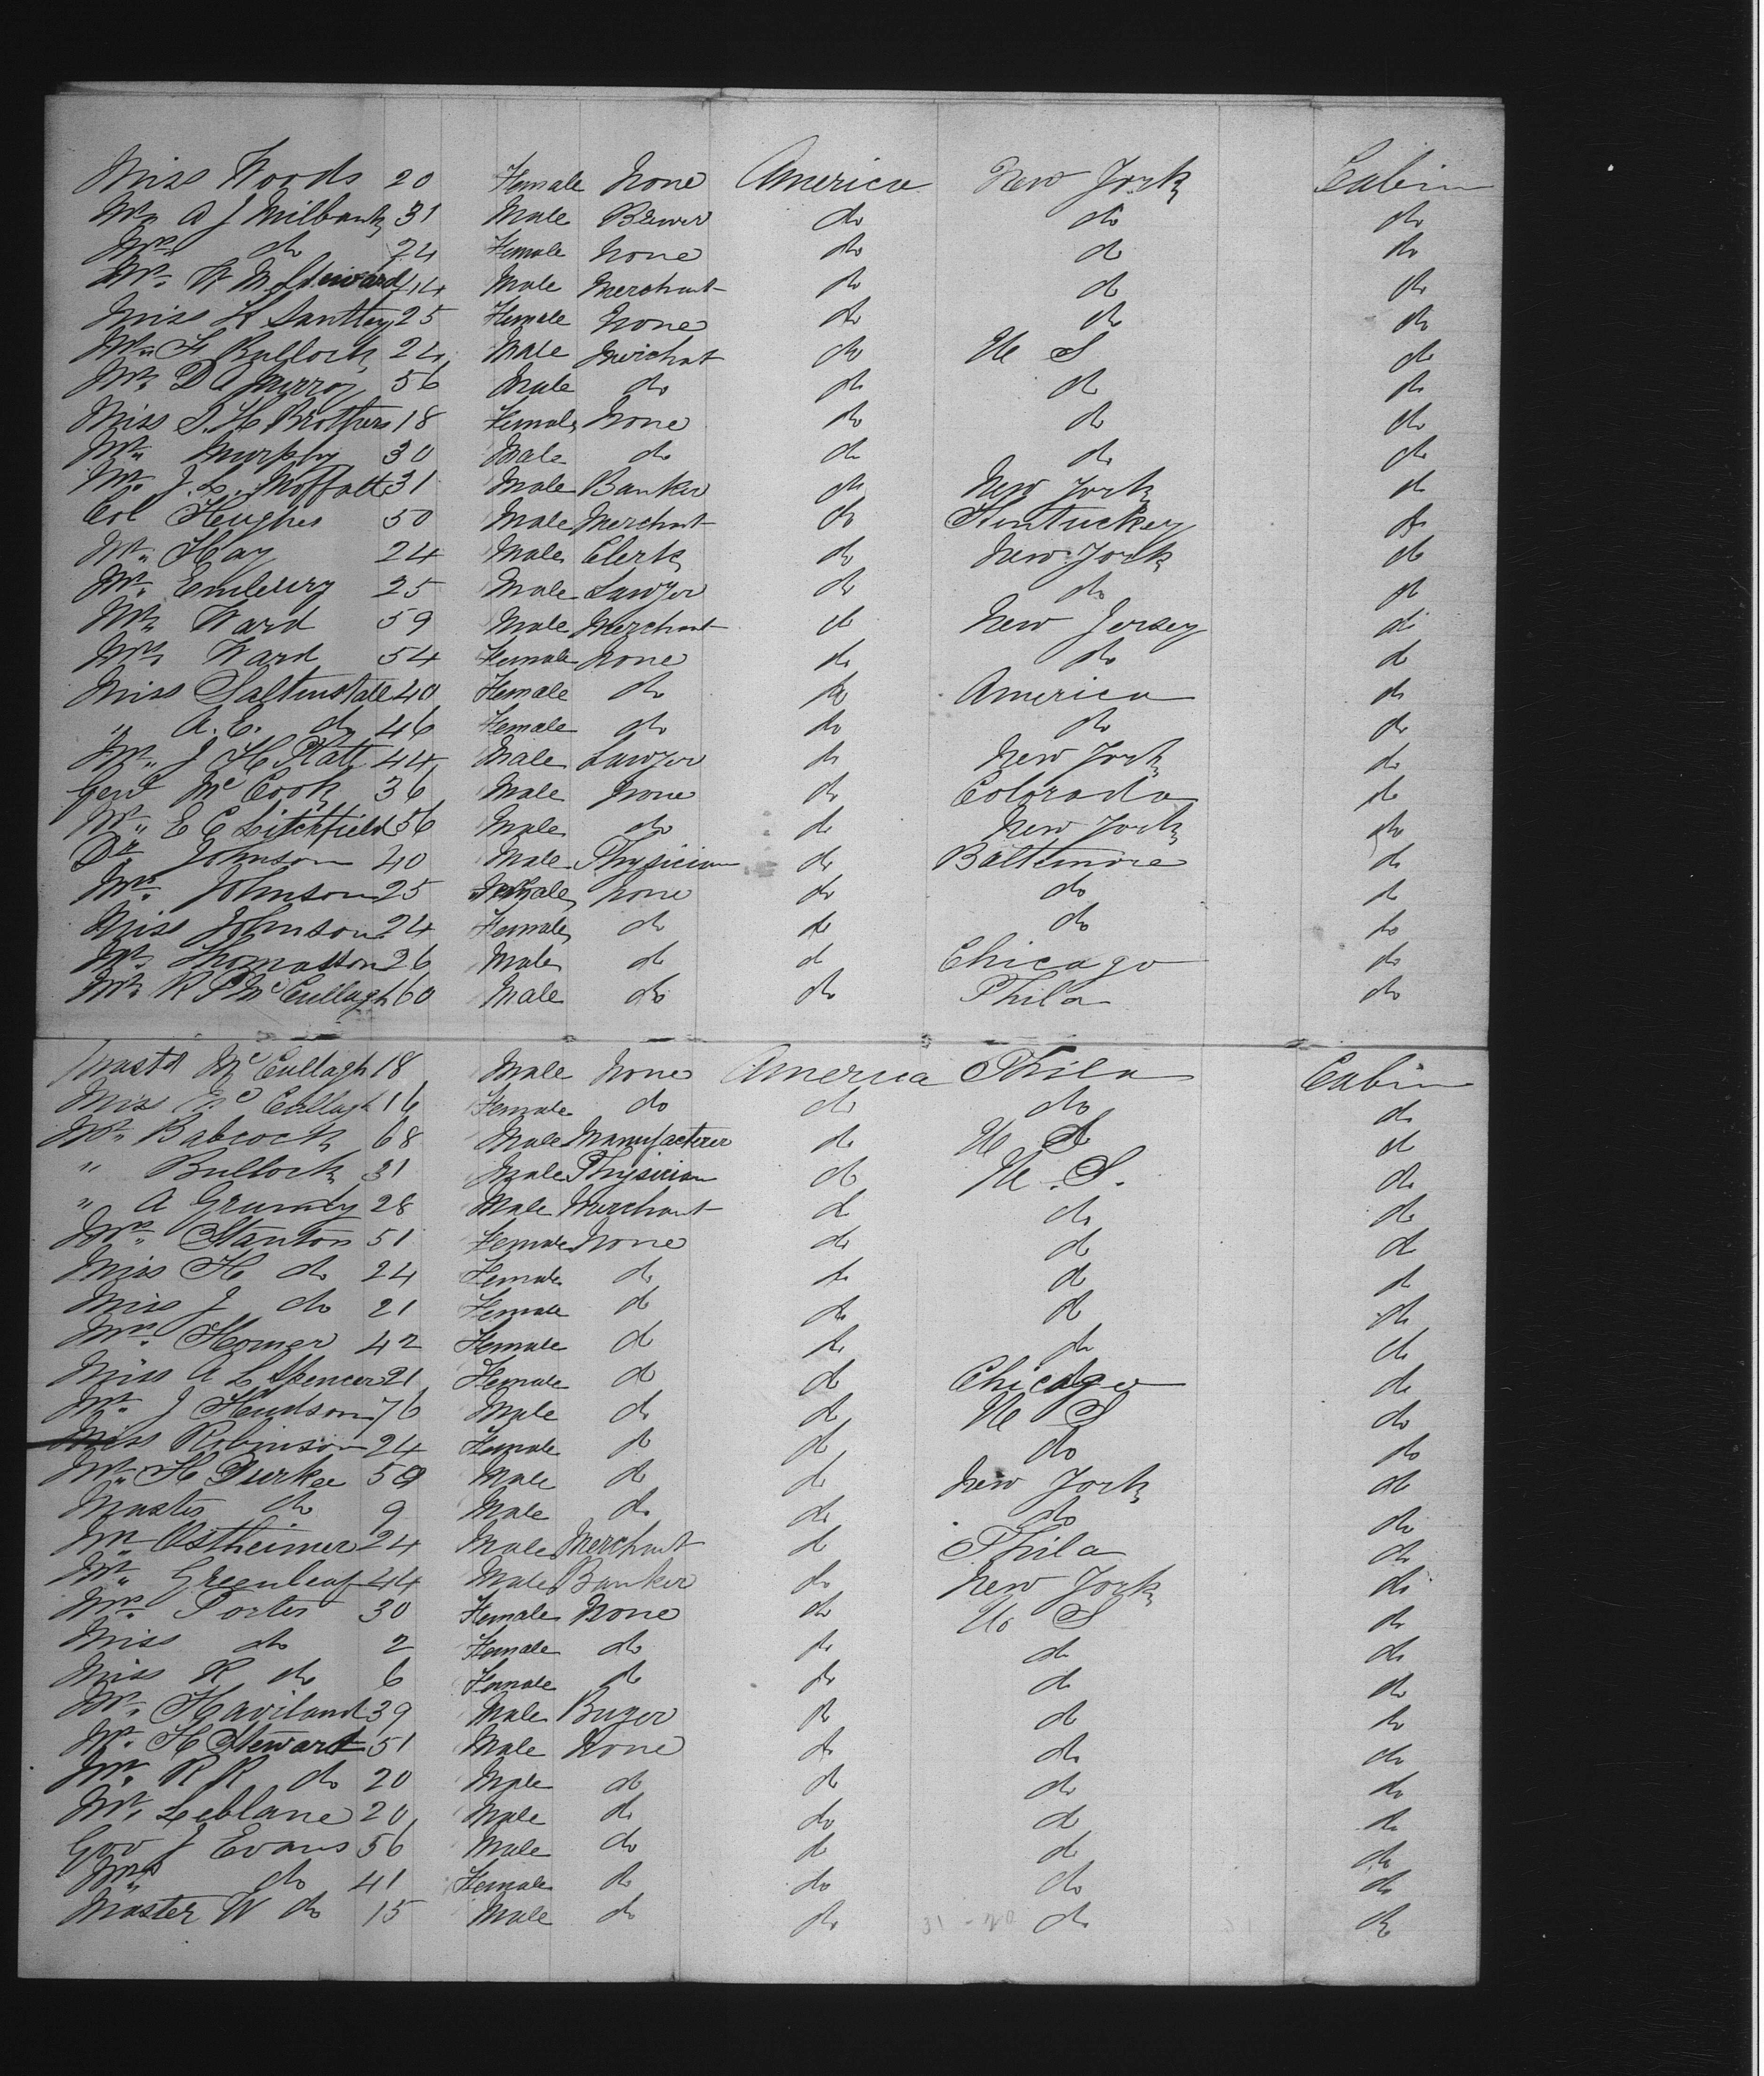 Miss Woods 20 Female None America New York Cabin
Mr. A J Milbank 31 Male Brewer do do do
Mrs do 24 Female None do do do
Mr. W M Steward 44 Male Merchant do do do
Miss K Santley 25 Female None do do do
Mr. F Bullock 24 Male Merchat do U S do
Mr. D A 56 Male do do do do
Miss S. H Brothers 18 Female None do do do
Mr. Murphy 30 Male do do do do
Mr. J. L. Moffatt 31 Male Banker do New York do
Col Hughes 50 Male Merchant do Kentuckey do
Mr. Hay 24 Male Clerk do New York do
Mr. Embury 25 Male Lawyer do do do
Mr. Ward 59 Male Merchant do New Jersey do
Mrs. Ward 54 Female None do do do
Miss Saltonstall 40 Female do do America do
" A. E. do 46 Female do do do do
Mr. J H Platt 44 Male Lawyer do New York do
Genl McCook 36 Male None do Colorado do
Mr. E C Litchfield 56 Male do do New York do
Dr Johnson 40 Male Physician do Baltimore do
Mrs. Johnson 25 Female None do do do
Miss Johnson 24 Female do do do do
Mr. Thomasson 26 Male do do Chicago do
Mr. R P McCullagh 60 Male do do Phila do
Mastr McCullagh 18 Male None America Phila Cabin
Miss McCullagh 16 Female do do do do
Mr. Babcock 68 Male Manufacterer do U S do
" Bullock 31 Male Physician do U. S. do
" A Grumby 28 Male Merchant do do do
Mrs. Stanton 51 Female None do do do
Miss H do 24 Female do do do do
Miss J do 21 Female do do do do
Mrs. Homer 42 Female do do do do
Miss A L Spencer 21 Female do do Chicago do
Mr. J Hudson 76 Male do do U S do
Miss Robinson 24 Female do do do do
Mr. H Durkee 50 Male do do New York do
Master do 9 Male do do do do
Mr. Ostheimer 24 Male Merchant do Phila do
Mr. Greenleaf 44 Male Banker do New York do
Mrs. Porter 30 Female None do U S do
Miss do 2 Female do do do do
Miss R do 6 Female do do do do
Mr. Haviland 39 Male Buyer do do do
Mr. H Stewart 51 Male None do do do
Mr. R R do 20 Male do do do do
Mr. Leblane 20 Male do do do do
Gov J Evans 56 Male do do do do
Mrs. do 41 Female do do do do
Master W do 15 Male do do do do